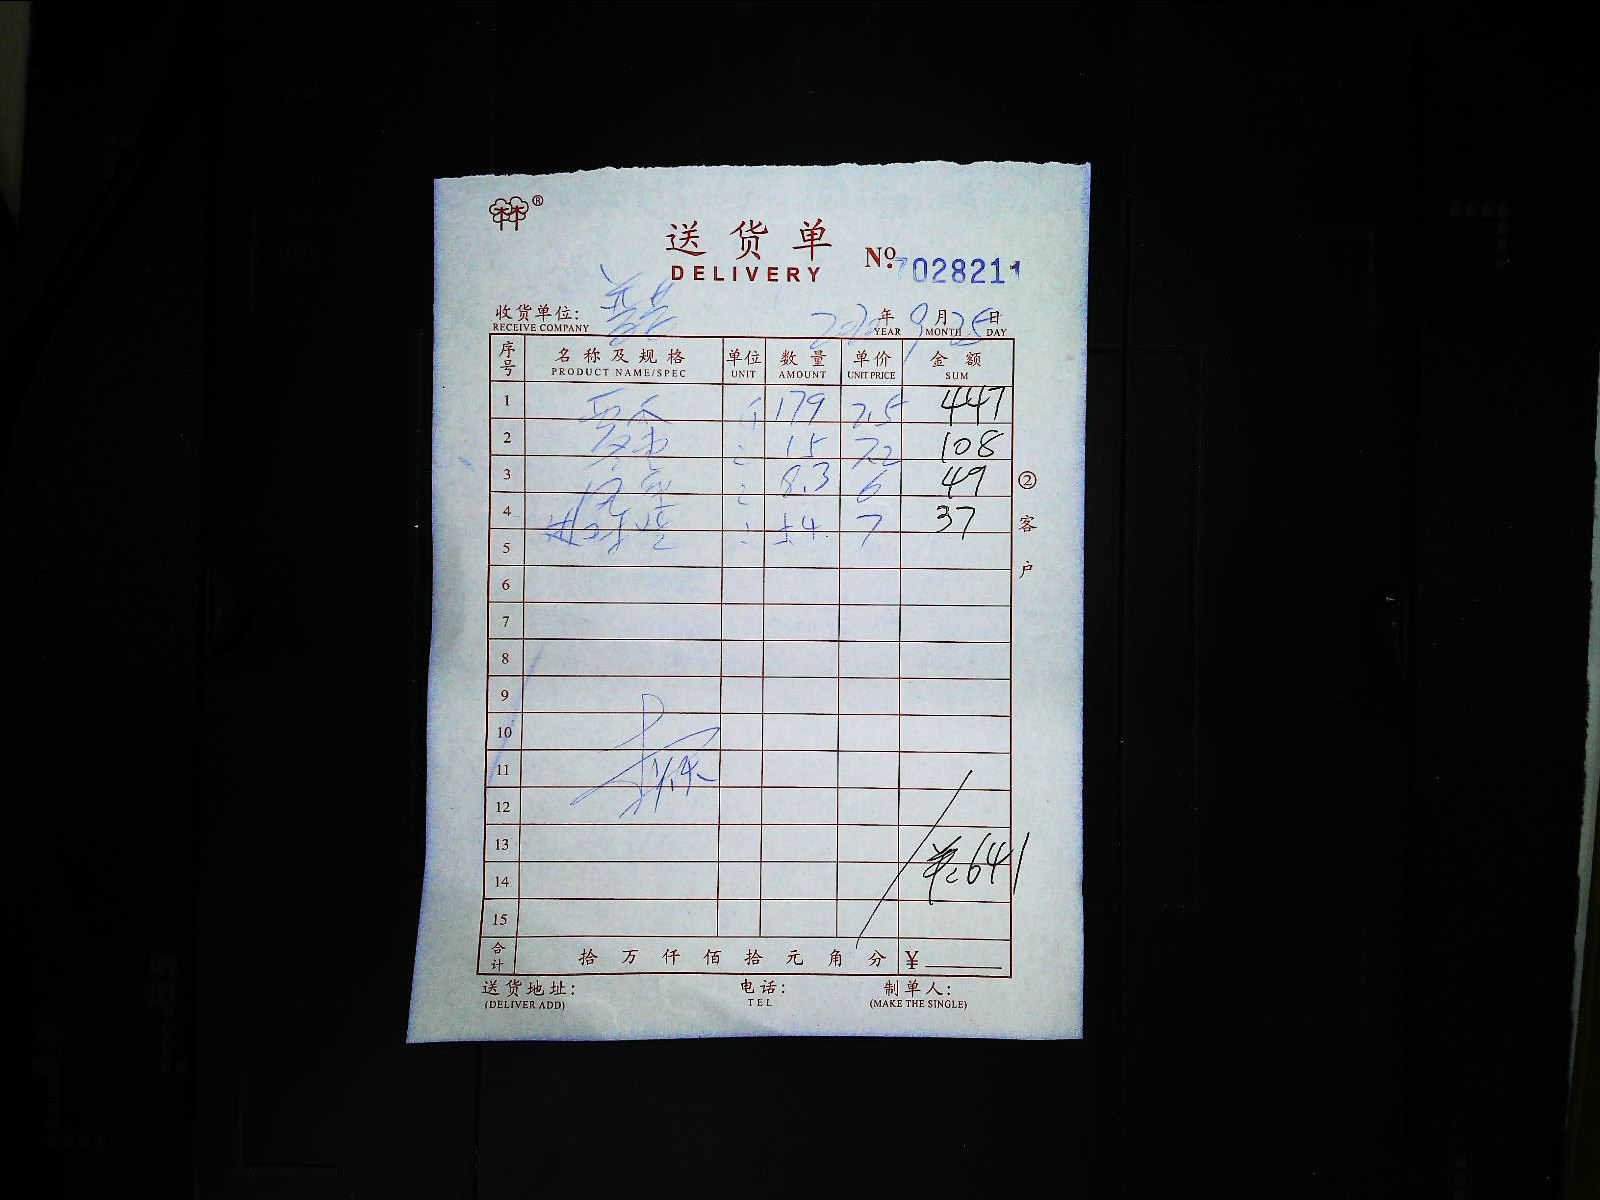 林®
送货单
DELIVERY
No. 7028211
收货单位:
RECEIVE COMPANY
2020年9月25日
YEAR MONTH DAY
序号 名称及规格 单位 数量 单价 金额
PRODUCT NAME/SPEC UNIT AMOUNT UNIT PRICE SUM
1 西瓜 个 179 2.5 447
2 15 7.2 108
3 8.3 6 49
4 5.4 7 37
5
6
7
8
9
10
11
12
13
14 641
15
合计 拾 万 仟 佰 拾 元 角 分 ¥
送货地址: 电话: 制单人:
(DELIVER ADD) TEL (MAKE THE SINGLE)
②客户